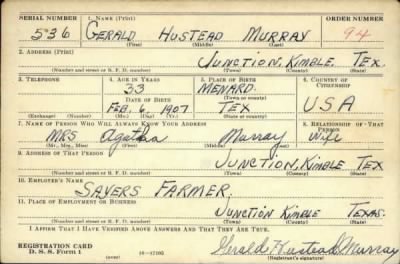 SERIAL NUMBER 1. NAME (Print) ORDER NUMBER
536 GERALD HUSTEAD MURRAY 94
(First) (Middle) (Last)
2. ADDRESS (Print)
JUNCTION, KIMBLE, TEX
(Number and street or R. F. D. number) (Town) (County) (State)
3. TELEPHONE 4. AGE IN YEARS 5. PLACE OF BIRTH 6. COUNTRY OF CITIZENSHIP
33 MENARD
DATE OF BIRTH (Town or county)
FEB. 6, 1907 TEX USA
(Exchange) (Number) (Mo.) (Day) (Yr.) (State or country)
7. NAME OF PERSON WHO WILL ALWAYS KNOW YOUR ADDRESS 8. RELATIONSHIP OF THAT PERSON
MRS Agatha Murray Wife
(Mr., Mrs., Miss) (First) (Middle) (Last)
9. ADDRESS OF THAT PERSON
JUNCTION, KIMBLE TEX
(Number and street or R. F. D. number) (Town) (County) (State)
10. EMPLOYER'S NAME
SAYERS FARMER
11. PLACE OF EMPLOYMENT OR BUSINESS
JUNCTION KIMBLE TEXAS.
(Number and street or R. F. D. number) (Town) (County) (State)
I AFFIRM THAT I HAVE VERIFIED ABOVE ANSWERS AND THAT THEY ARE TRUE.
REGISTRATION CARD
D. S. S. Form 1 (over) 16—17105 Gerald Hustead Murray
(Registrant's signature)